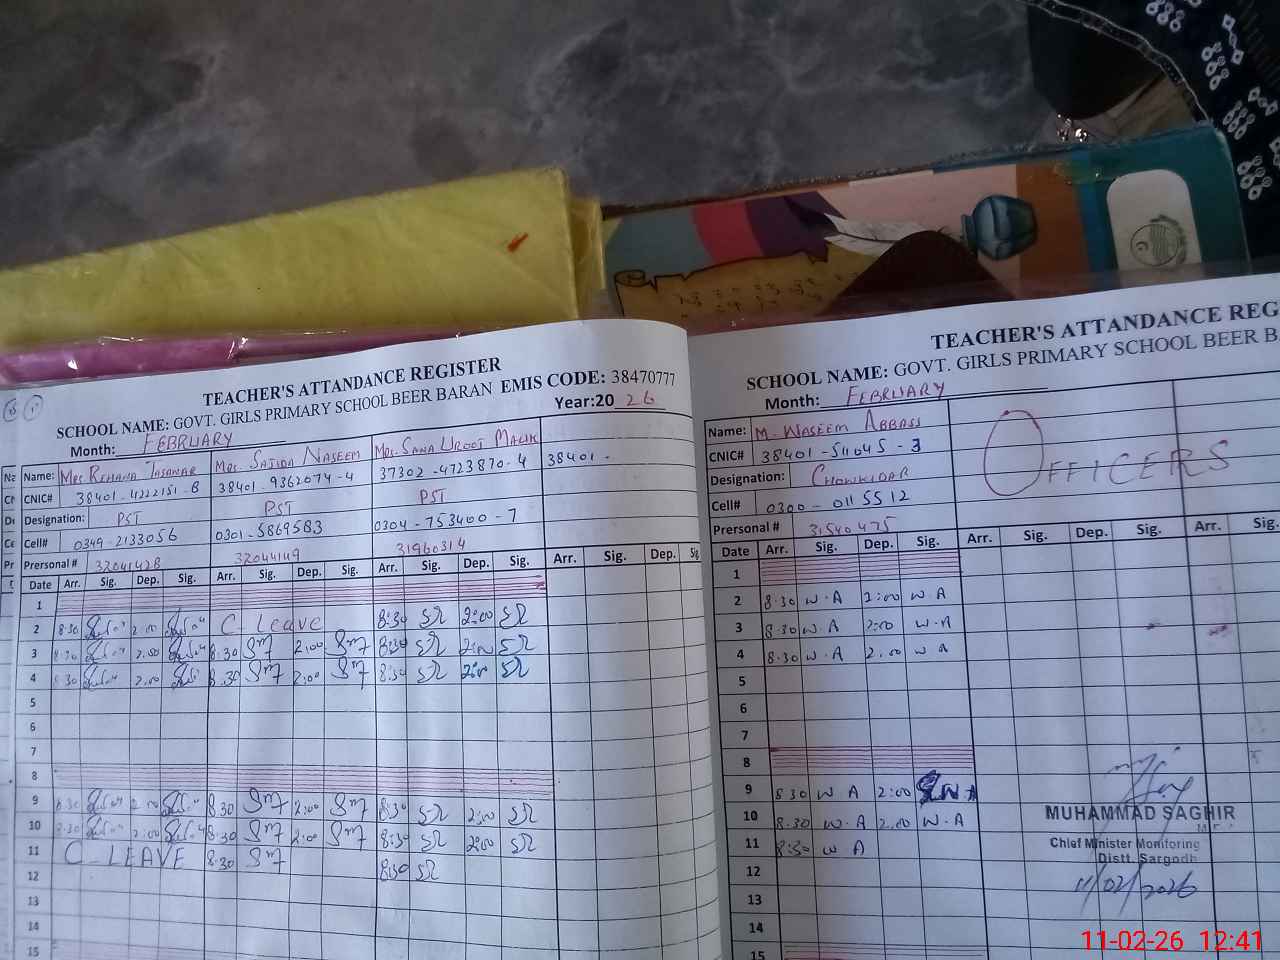 TEACHER'S ATTANDANCE REGISTER
SCHOOL NAME: GOVT. GIRLS PRIMARY SCHOOL BEER BARAN EMIS CODE: 38470777
Month: FEBRUARY Year:20 26
Name: Mrs. Sajida Naseem Mrs. Sana Urooj Malik
CNIC# 38401-4222151-8 38401-9362074-4 37302-4723870-4 38401-
Designation: PST PST PST
Cell# 0349-2133056 0301-5869583 0304-753400-7
Prersonal # 32041428 32044149 31960314
Date Arr. Sig. Dep. Sig. Arr. Sig. Dep. Sig. Arr. Sig. Dep. Sig. Arr. Sig. Dep. Sig
1
2 8:30 2:00 C-Leave 8:30 2:00
3 8:30 2:00 8:30 2:00 8:30 2:00
4 8:30 2:00 8:30 2:00 8:30 2:00
5
6
7
8
9 8:30 2:00 8:30 2:00 8:30 2:00
10 8:30 2:00 8:30 2:00 8:30 2:00
11 C-LEAVE 8:30 8:30
12
13
14
15
TEACHER'S ATTANDANCE REG
SCHOOL NAME: GOVT. GIRLS PRIMARY SCHOOL BEER B
Month: FEBRUARY
Name: M. WASEEM ABBASS
CNIC# 38401-511045-3
Designation: CHOWKIDAR
Cell# 0300-0115512
Prersonal # 31540475
OFFICERS
Date Arr. Sig. Dep. Sig. Arr. Sig. Dep. Sig. Arr. Sig.
1
2 8:30 W.A 2:00 W.A
3 8:30 W.A 2:00 W.A
4 8:30 W A 2:00 W A
5
6
7
8
9 8:30 W A 2:00 W.A
10 8:30 W.A 2:00 W.A
11 8:30 W A
12
13
14
15
MUHAMMAD SAGHIR
Chief Minister Monitoring
Distt. Sargodh
11/02/2026
11-02-26 12:41